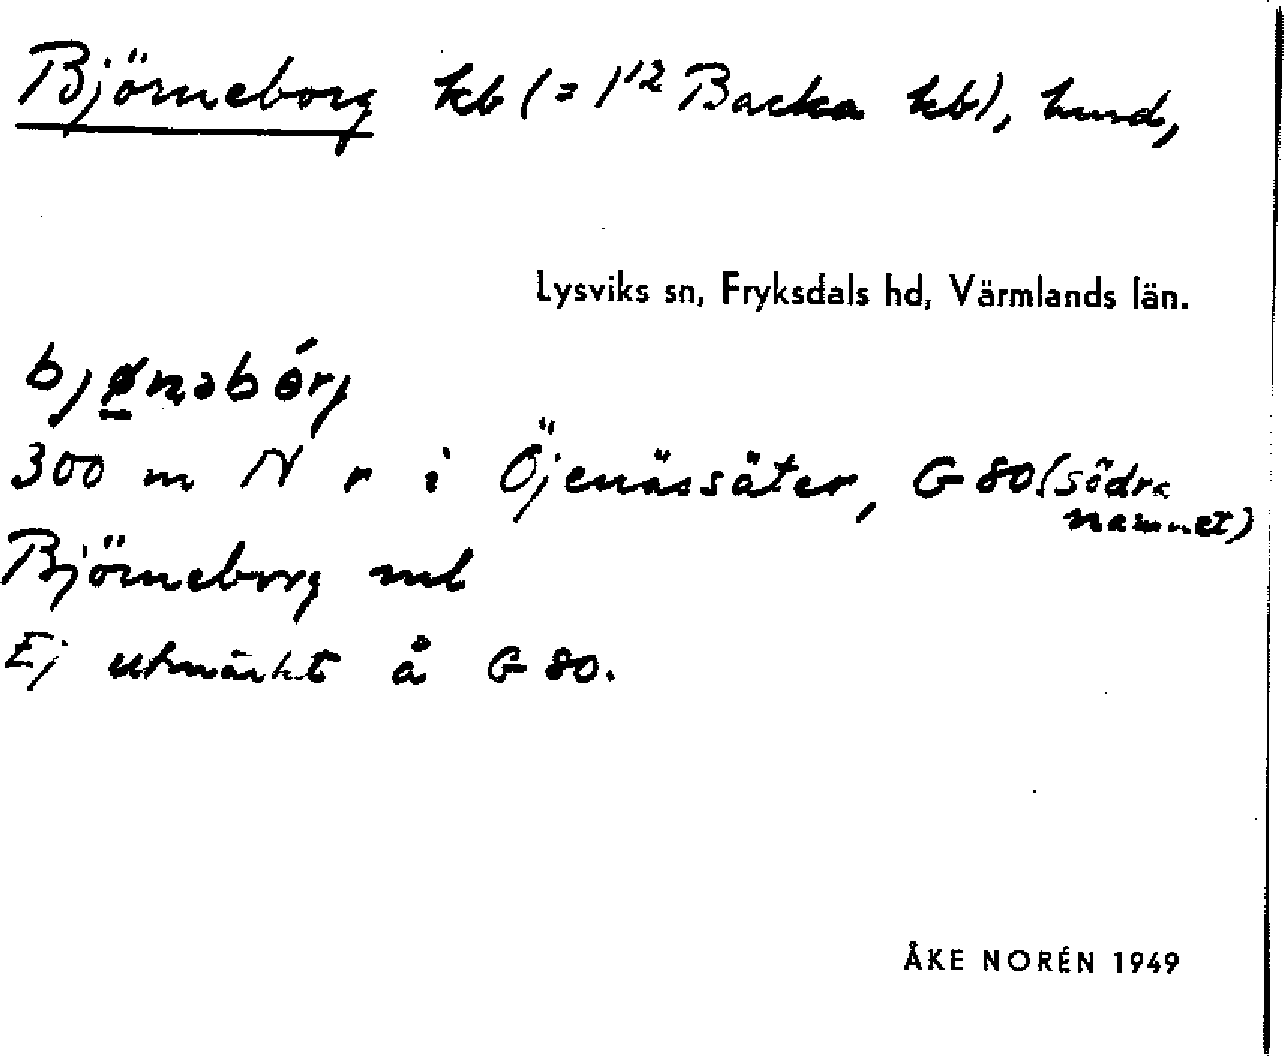 Björneborg kb (= 1¹² Backa kb), hmd,
Lysviks sn, Fryksdals hd, Värmlands län.
bjønəbórj
300 m N r i Öjenässäter, G 80 (södra namnet)
Björneborg ml
Ej utmärkt å G 80.
ÅKE NORÉN 1949